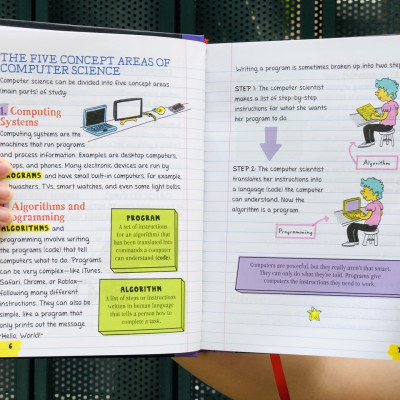 THE FIVE CONCEPT AREAS OF
COMPUTER SCIENCE
Computer science can be divided into five concept areas
(main parts) of study:
1. Computing
Systems
Computing systems are the
machines that run programs
and process information. Examples are desktop computers,
ops, and phones. Many electronic devices are run by
ROGRAMS and have small built-in computers: for example,
hwashers, TVs, smart watches, and even some light bulbs.
Algorithms and
ogramming
ALGORITHMS and
programming involve writing
the programs (code) that tell
computers what to do. Programs
can be very complex—like iTunes,
Safari, Chrome, or Roblox—
following many different
instructions. They can also be
simple, like a program that
only prints out the message
"Hello, World!"
PROGRAM
A set of instructions
(or an algorithm) that
has been translated into
commands a computer
can understand (code).
ALGORITHM
A list of steps or instructions
written in human language
that tells a person how to
complete a task.
6
Writing a program is sometimes broken up into two step
STEP 1: The computer scientist
makes a list of step-by-step
instructions for what she wants
her program to do.
Algorithm
STEP 2: The computer scientist
translates her instructions into
a language (code) the computer
can understand. Now the
algorithm is a program.
Programming
Computers are powerful, but they really aren't that smart.
They can only do what they're told. Programs give
computers the instructions they need to work.